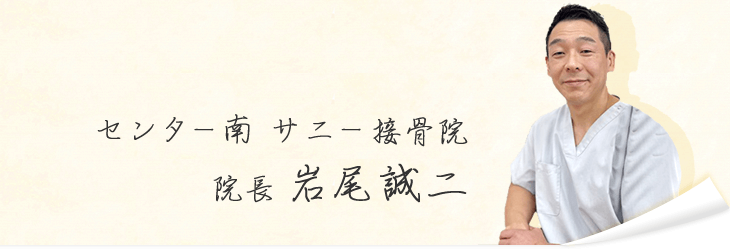 センター南 サニー接骨院
院長 岩尾誠二